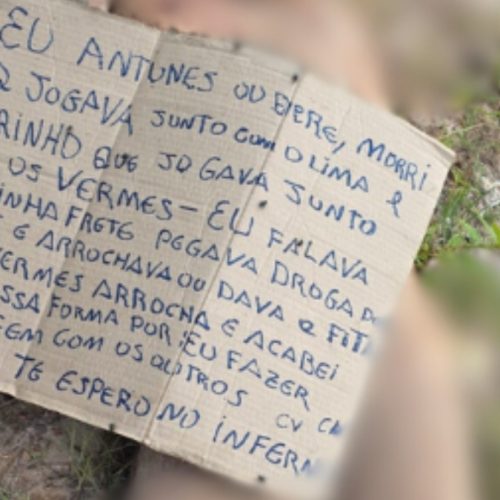 EU ANTUNES OU BERE, MORRI
JOGAVA JUNTO COM O LIMA E
RINHO QUE JOGAVA JUNTO
OS VERMES - EU FALAVA
INHA FRETE PEGAVA DROGA
E ARROCHAVA OU DAVA E FITA
ERMES ARROCHA E ACABEI
SSA FORMA POR EU FAZER
EM COM OS OUTROS CV
TE ESPERO NO INFERN